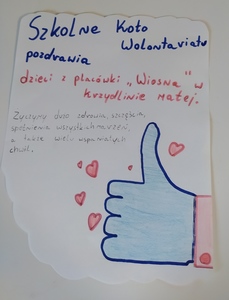 Szkolne Koło
Wolontariatu
pozdrawia
dzieci z placówki „Wiosna” w
Krzydlinie Małej.
Życzymy dużo zdrowia, szczęścia,
spełnienia wszystkich marzeń,
a także wielu wspaniałych
chwil.